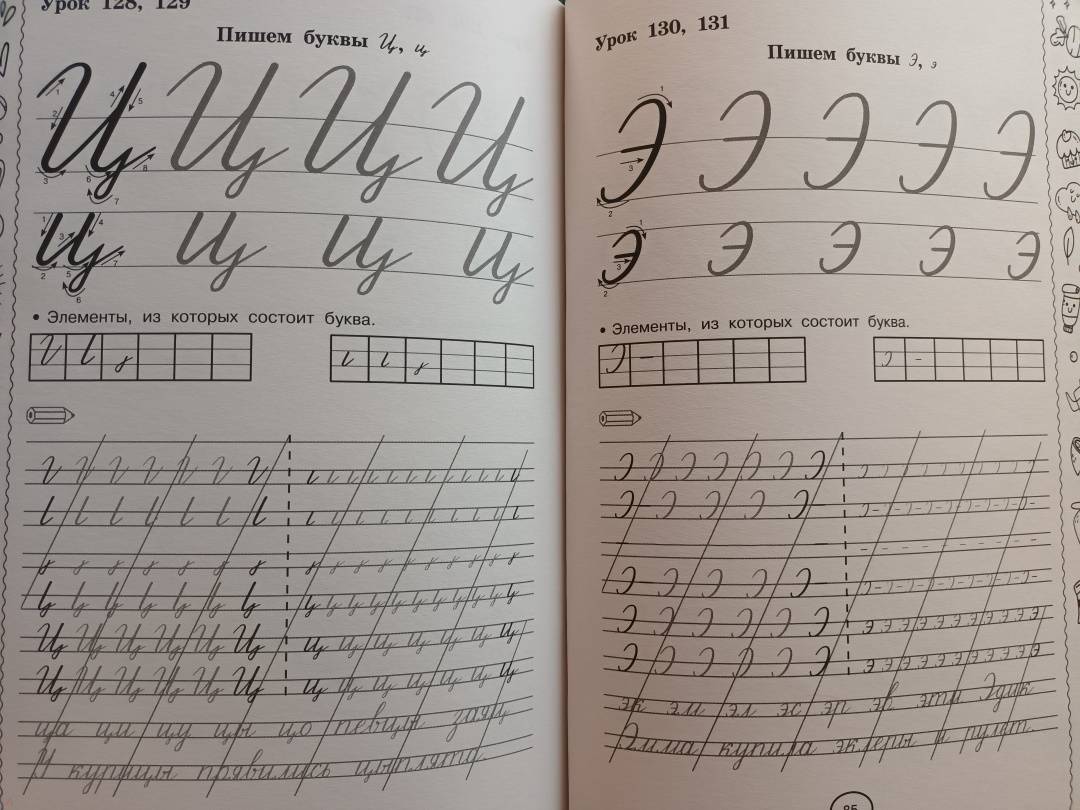 Урок 128, 129
Пишем буквы Ц, ц
Ц Ц Ц Ц
ц ц ц ц
• Элементы, из которых состоит буква.
ца ци цу цы цо певцы заяц
У курицы появились цыплята.
Урок 130, 131
Пишем буквы Э, э
Э Э Э Э Э
э э э э э
• Элементы, из которых состоит буква.
Э Э Э Э Э э э э э э э э э э э
Э Э Э Э Э э э э э э э э э э э
эк эм эл эс эр эв эти Эдик
Эмма купила эклеры и рулет.
85